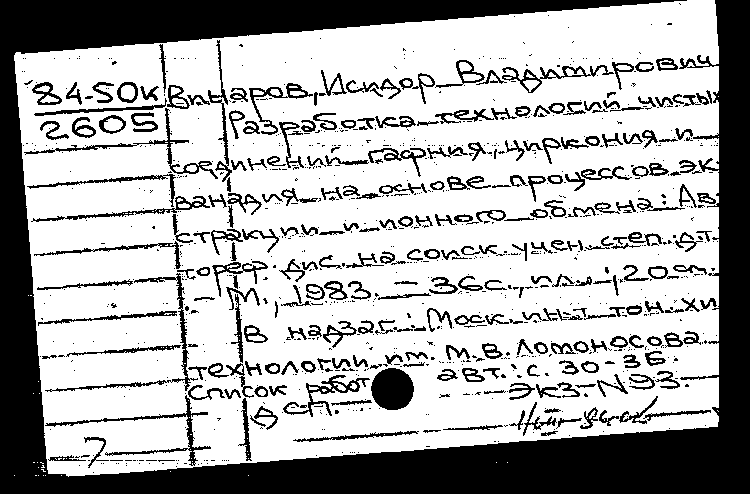 84-50к
2605
Винаров, Исидор Владимирович
Разработка технологий чистых
соединений гафния, циркония и
ванадия на основе процессов эк-
стракции и ионного обмена: Ав-
тореф. дис. на соиск. учен. степ. д.т.
.- М., 1983. - 36с., ил.; 20см.
В надзаг.: Моск. ин-т тон. хи
технологии им. М.В. Ломоносова
Список работ авт.: с. 30-36.
ДСП. Экз. N93.
7